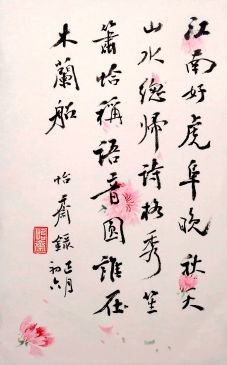 江南好虎阜晚秋天
山水總歸詩格秀笙
簫恰稱語音圓誰在
木蘭船
怡齋鐮
正月
初六